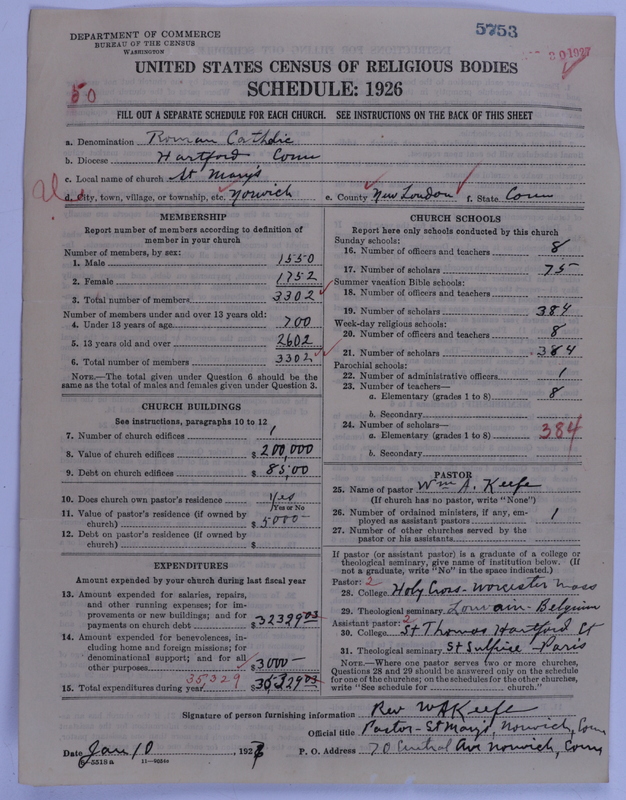 DEPARTMENT OF COMMERCE
BUREAU OF THE CENSUS
WASHINGTON
5753
UNITED STATES CENSUS OF RELIGIOUS BODIES
SCHEDULE: 1926
50
FILL OUT A SEPARATE SCHEDULE FOR EACH CHURCH. SEE INSTRUCTIONS ON THE BACK OF THIS SHEET
a. Denomination Roman Catholic
b. Diocese Hartford Conn
c. Local name of church St Mary's
d. City, town, village, or township, etc. Norwich e. County New London f. State Conn
MEMBERSHIP
Report number of members according to definition of
member in your church
Number of members, by sex:
1. Male 1550
2. Female 1752
3. Total number of members 3302
Number of members under and over 13 years old:
4. Under 13 years of age 700
5. 13 years old and over 2602
6. Total number of members 3302
NOTE.—The total given under Question 6 should be the
same as the total of males and females given under Question 3.
CHURCH BUILDINGS
See instructions, paragraphs 10 to 12
7. Number of church edifices 1
8. Value of church edifices $ 200,000
9. Debt on church edifices $ 8500
10. Does church own pastor's residence Yes
Yes or No
11. Value of pastor's residence (if owned by
church) $ 5000
12. Debt on pastor's residence (if owned by
church) $
EXPENDITURES
Amount expended by your church during last fiscal year
13. Amount expended for salaries, repairs,
and other running expenses; for im-
provements or new buildings; and for
payments on church debt $ 32329 03
14. Amount expended for benevolences, in-
cluding home and foreign missions; for
denominational support; and for all
other purposes $ 3000
35,329
15. Total expenditures during year $ 35329 03
CHURCH SCHOOLS
Report here only schools conducted by this church
Sunday schools:
16. Number of officers and teachers 8
17. Number of scholars 75
Summer vacation Bible schools:
18. Number of officers and teachers
19. Number of scholars 384
Week-day religious schools:
20. Number of officers and teachers 8
21. Number of scholars 384
Parochial schools:
22. Number of administrative officers 1
23. Number of teachers—
a. Elementary (grades 1 to 8) 8
b. Secondary
24. Number of scholars—
a. Elementary (grades 1 to 8) 384
b. Secondary
PASTOR
25. Name of pastor Wm A. Keefe
(If church has no pastor, write "None")
26. Number of ordained ministers, if any, em-
ployed as assistant pastors 1
27. Number of other churches served by the
pastor or his assistants
If pastor (or assistant pastor) is a graduate of a college or
theological seminary, give name of institution below. (If
not a graduate, write "No" in the space indicated.)
Pastor: 2
28. College Holy Cross - Worcester Mass
29. Theological seminary Louvain - Belgium
Assistant pastor: 2
30. College St Thomas Hartford Ct
31. Theological seminary St Sulpice - Paris
NOTE.—Where one pastor serves two or more churches,
Questions 28 and 29 should be answered only on the schedule
for one of the churches; on the schedules for the other churches,
write "See schedule for church."
Signature of person furnishing information Rev W A Keefe
Official title Pastor - St Mary's, Norwich, Conn
Date Jan 10, 1927 P. O. Address 70 Central Ave Norwich, Conn
6-5518a 11—9024a